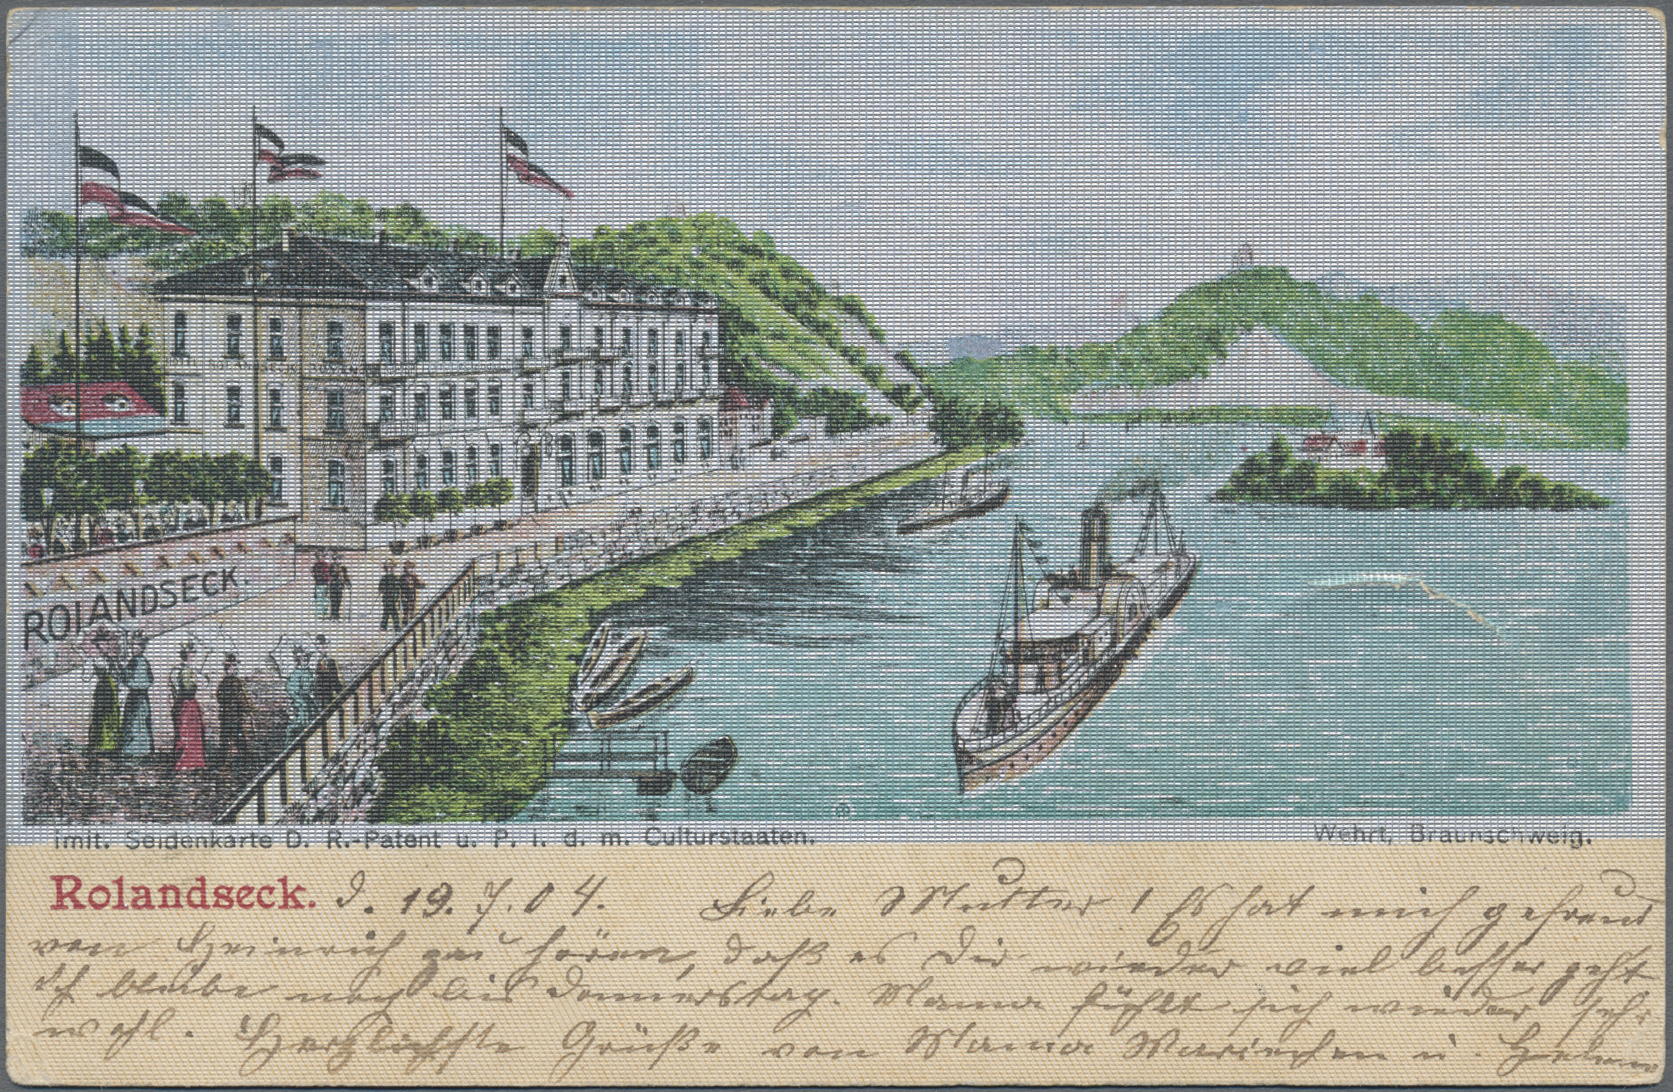 ROLANDSECK.
imit. Seidenkarte D. R.-Patent u. P. i. d. m. Culturstaaten.
Wehrt, Braunschweig.
Rolandseck. d. 19. 7. 04. Liebe Mutter! Es hat mich gefreut
von Heinrich zu hören, daß es Dir wieder viel besser geht
Ich bleibe noch bis Donnerstag. Mama fühlt sich wieder sehr
wohl. Herzlichste Grüße von Mama Mariechen u.